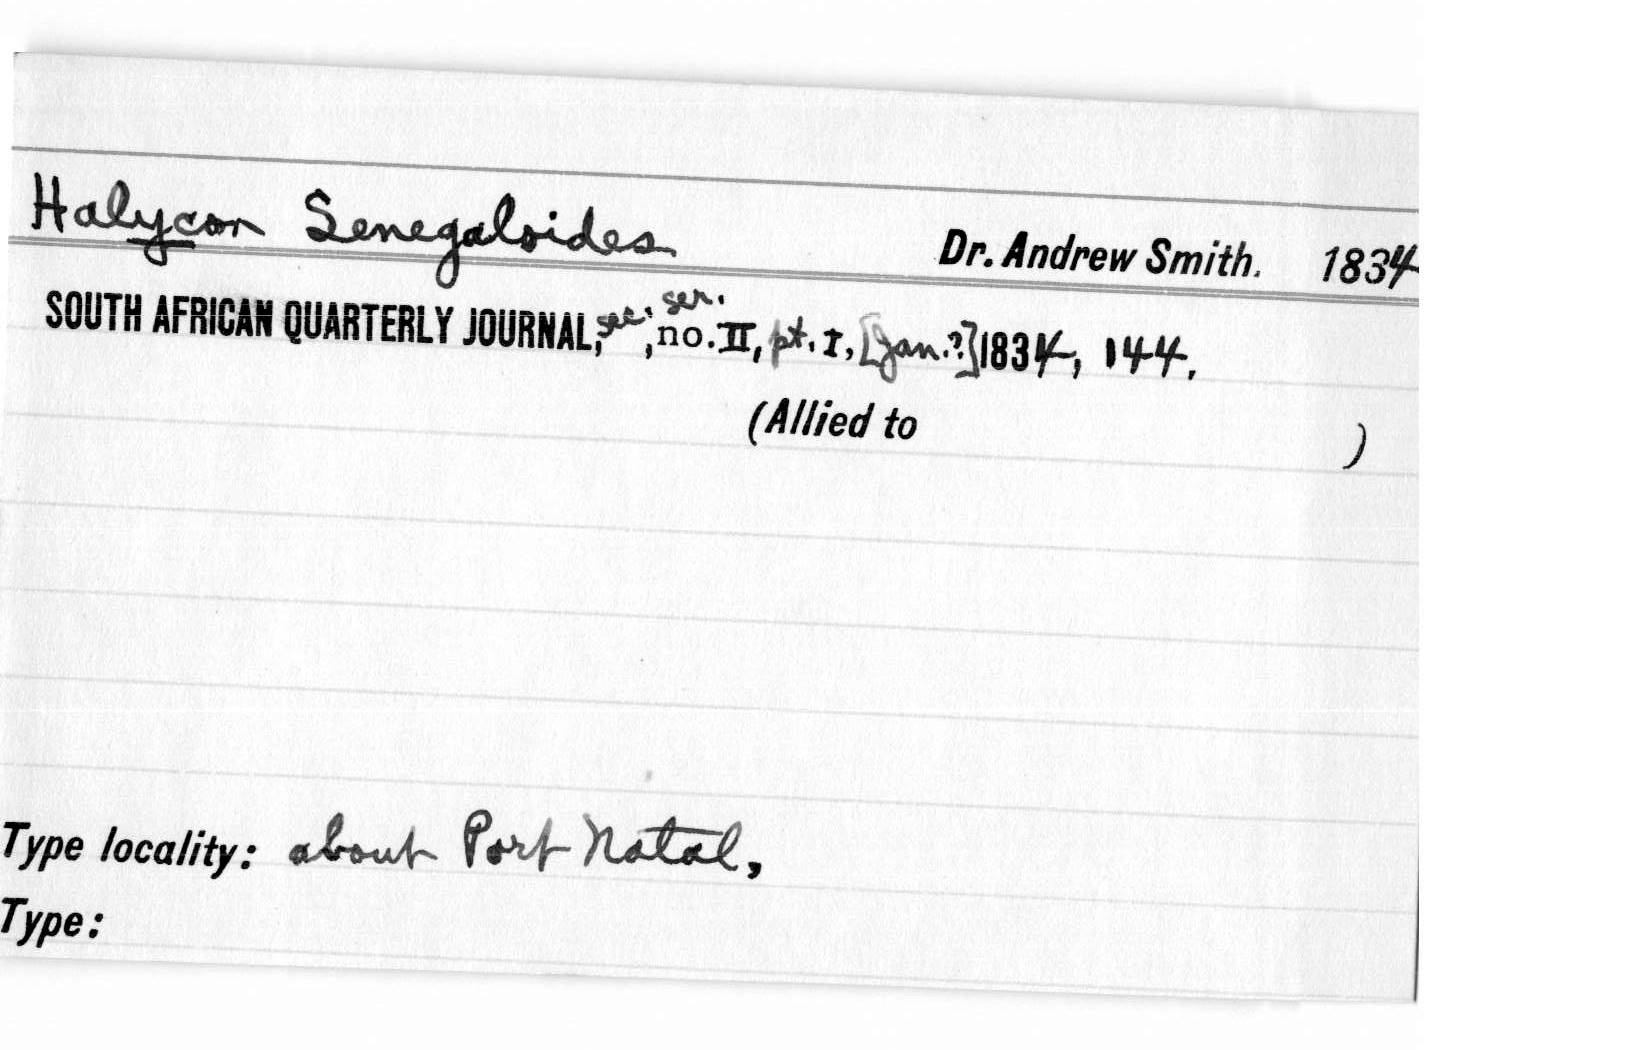 Halycon Senegaloides Dr. Andrew Smith. 1834
SOUTH AFRICAN QUARTERLY JOURNAL, sec. ser., no. II, pt. I, [Jan.?] 1834, 144.
(Allied to )
Type locality: about Port Natal,
Type: